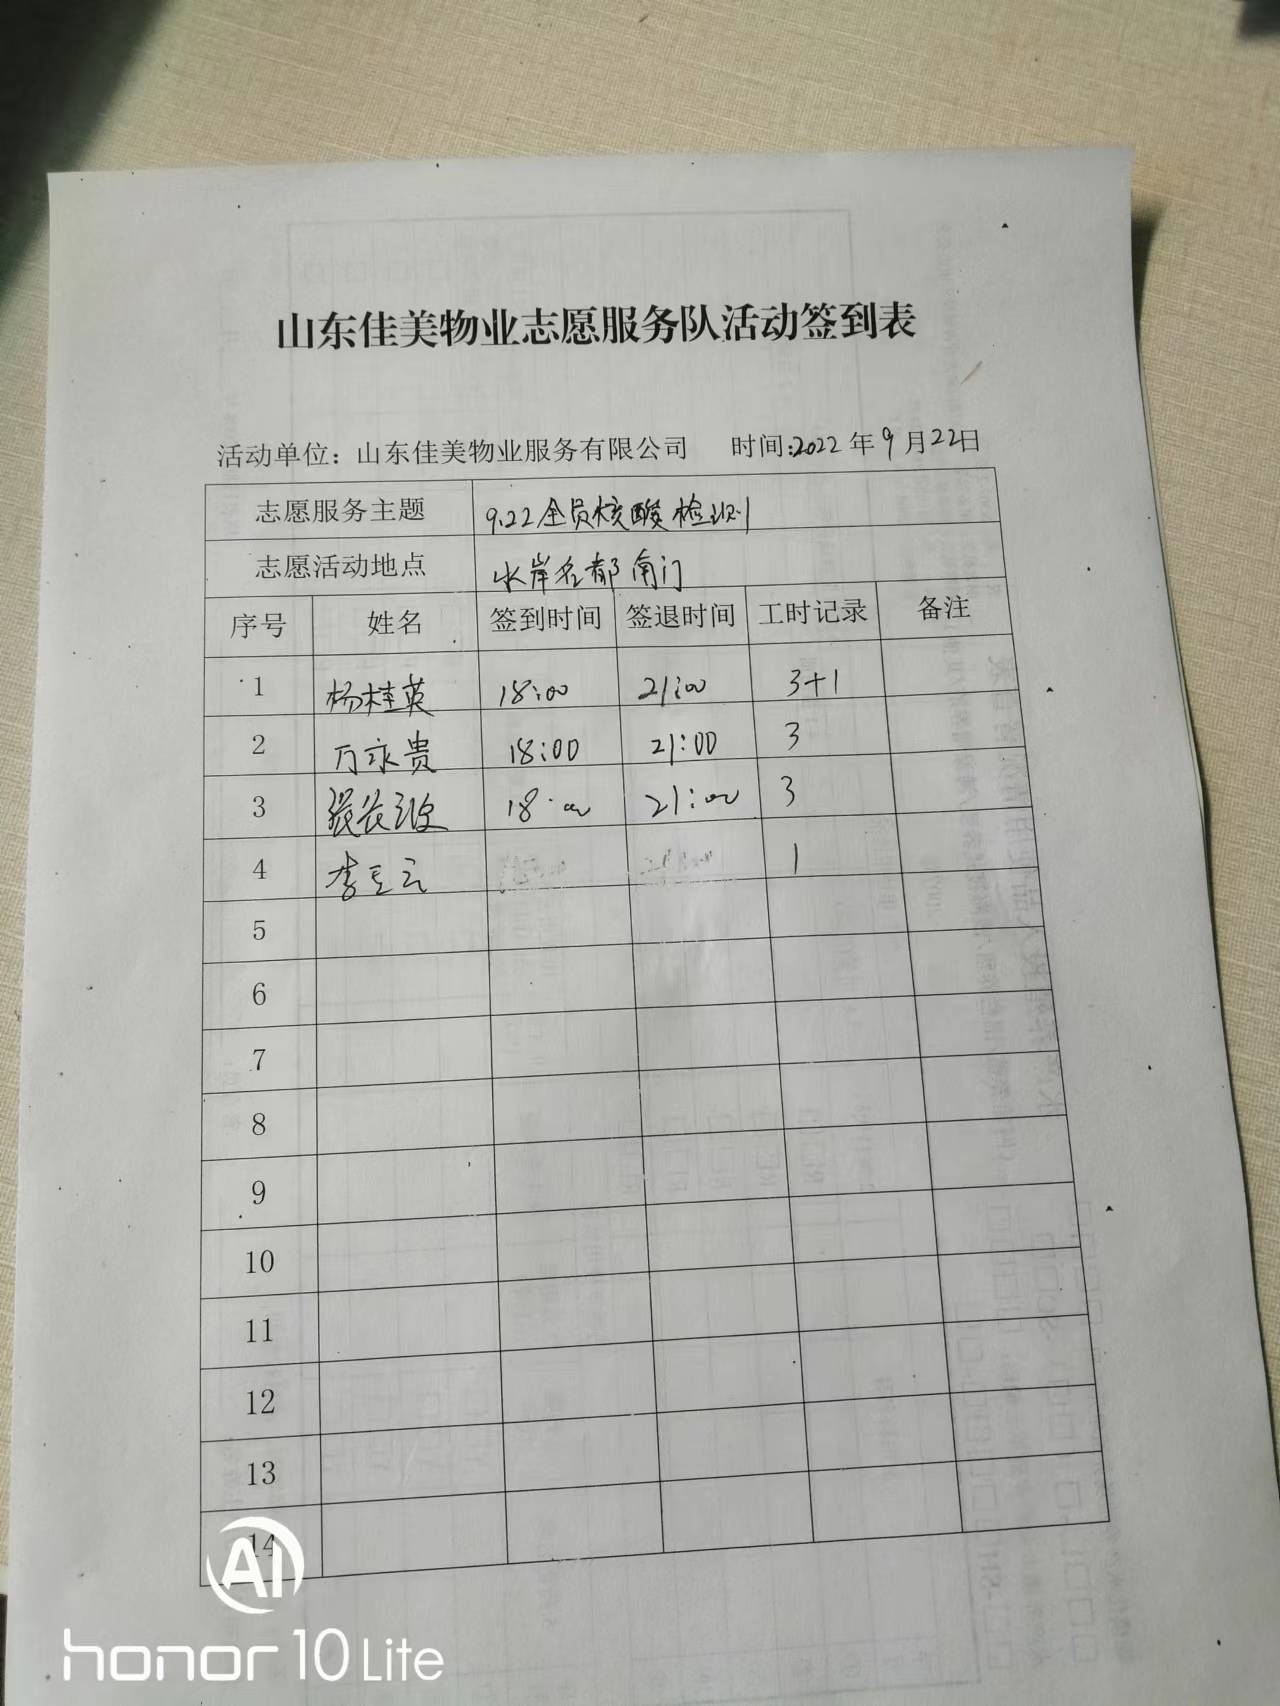 山东佳美物业志愿服务队活动签到表
活动单位：山东佳美物业服务有限公司 时间:2022年9月22日
志愿服务主题 9.22全员核酸检测
志愿活动地点 水岸名都南门
序号 姓名 签到时间 签退时间 工时记录 备注
1 杨桂英 18:00 21:00 3+1
2 万永贵 18:00 21:00 3
3 18:00 21:00 3
4 1
5
6
7
8
9
10
11
12
13
14
AI
honor 10 Lite